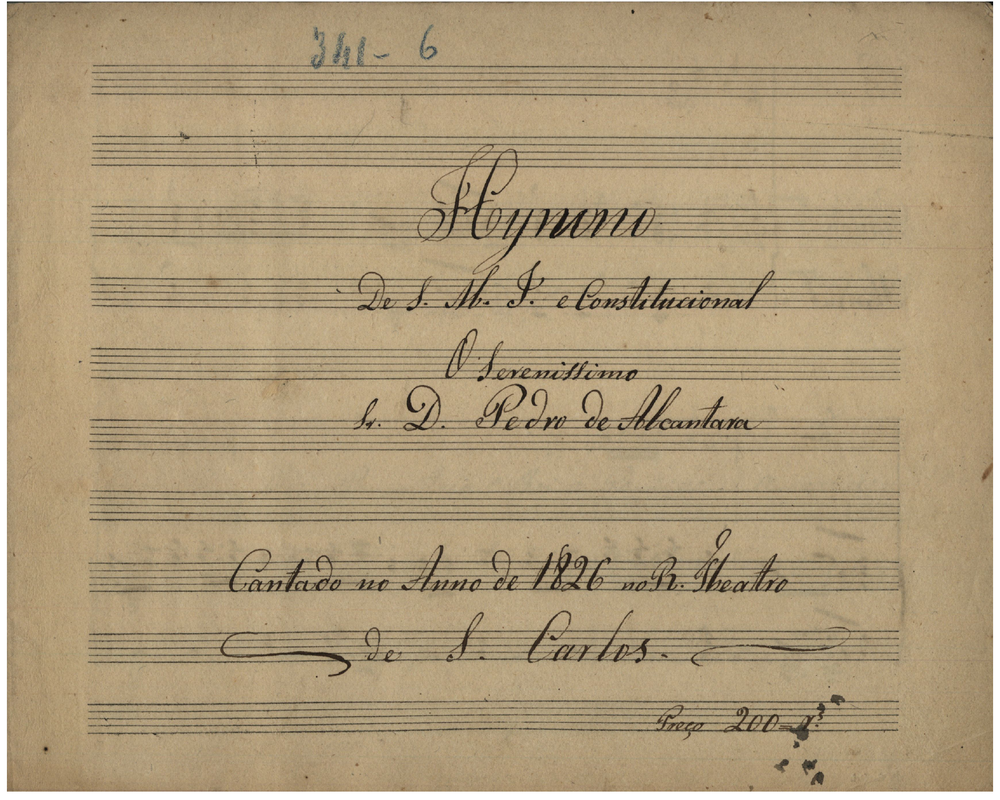 341-6
Hymno
De S. M. I. e Constitucional
O Serenissimo
Sr. D. Pedro de Alcantara
Cantado no Anno de 1826 no R. Theatro
de S. Carlos.
Preço 200 rs.